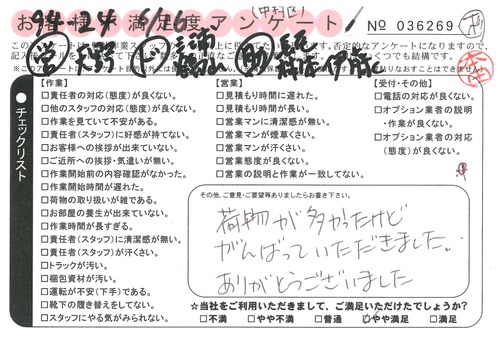 お客様満足度アンケート
(中村区)
No 036269
94-24 6/26
チェックリスト
【作業】
□責任者の対応(態度)が良くない。
□他のスタッフの対応(態度)が良くない。
□作業を見ていて不安がある。
□責任者(スタッフ)に好感が持てない。
□お客様への挨拶が出来ていない。
□ご近所への挨拶・気遣いが無い。
□作業開始前の内容確認がなかった。
□作業開始時間が遅れた。
□荷物の取り扱いが雑である。
□お部屋の養生が出来ていない。
□作業時間が長すぎる。
□責任者(スタッフ)に清潔感が無い。
□責任者(スタッフ)が汗くさい。
□トラックが汚い。
□梱包資材が汚い。
□運転が不安(下手)である。
□靴下の履き替えをしてない。
□スタッフにやる気がみられない。
【営業】
□見積もり時間に遅れた。
□見積もり時間が長い。
□営業マンに清潔感が無い。
□営業マンが煙草くさい。
□営業マンが汗くさい。
□営業態度が良くない。
□営業の説明と作業が一致してない。
【受付・その他】
□電話の対応が良くない。
□オプション業者の説明
・作業が良くない。
□オプション業者の対応
(態度)が良くない。
その他、ご意見・ご要望等ありましたらお書き下さい。
荷物が多かったけど
がんばっていただきました。
ありがとうございました
☆当社をご利用いただきまして、ご満足いただけたでしょうか?
□不満 □やや不満 □普通 □やや満足 □満足